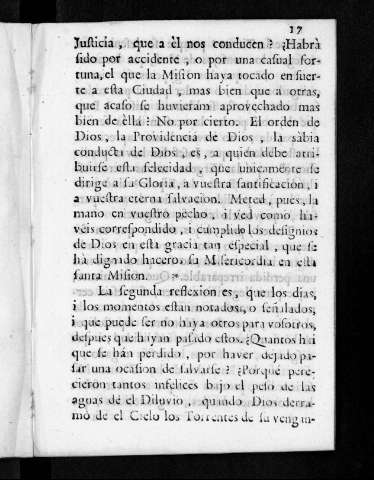 17
Justicia, que a èl nos conducen? ¿Habrà
sido por accidente, o por una casual for-
tuna, el que la Mision haya tocado en suer-
te a esta Ciudad, mas bien que a otras,
que acaso se huvieram aprovechado mas
bien de èlla? No por cierto. El orden de
Dios, la Providencia de Dios, la sàbia
conducta de Dios, es, a quién debe atri-
buirse esta felecidad, que unicamente se
dirige a su Gloria, a vuestra santificaciòn, i
a vuestra eterna salvacion. Meted, pues, la
mano en vuestro pecho, i ved como ha-
véis correspondido, i cumplido los designios
de Dios en esta gracia tan especial, que se
hà dignado haceros su Misericordia en esta
santa Mision.
La segunda reflexion es, que los dias,
i los momentos estàn notados, o señalados;
i que puede ser no haya otros para vosotros,
despues que hayan pasado estos. ¿Quantos hai
que se hàn perdido, por haver dejado pa-
sar una ocasion de salvarse? ¿Porqué pere-
cieron tantos infelices bajo el peso de las
aguas de el Diluvio, quando Dios derra-
mò de el Cielo los Torrentes de su vengan-